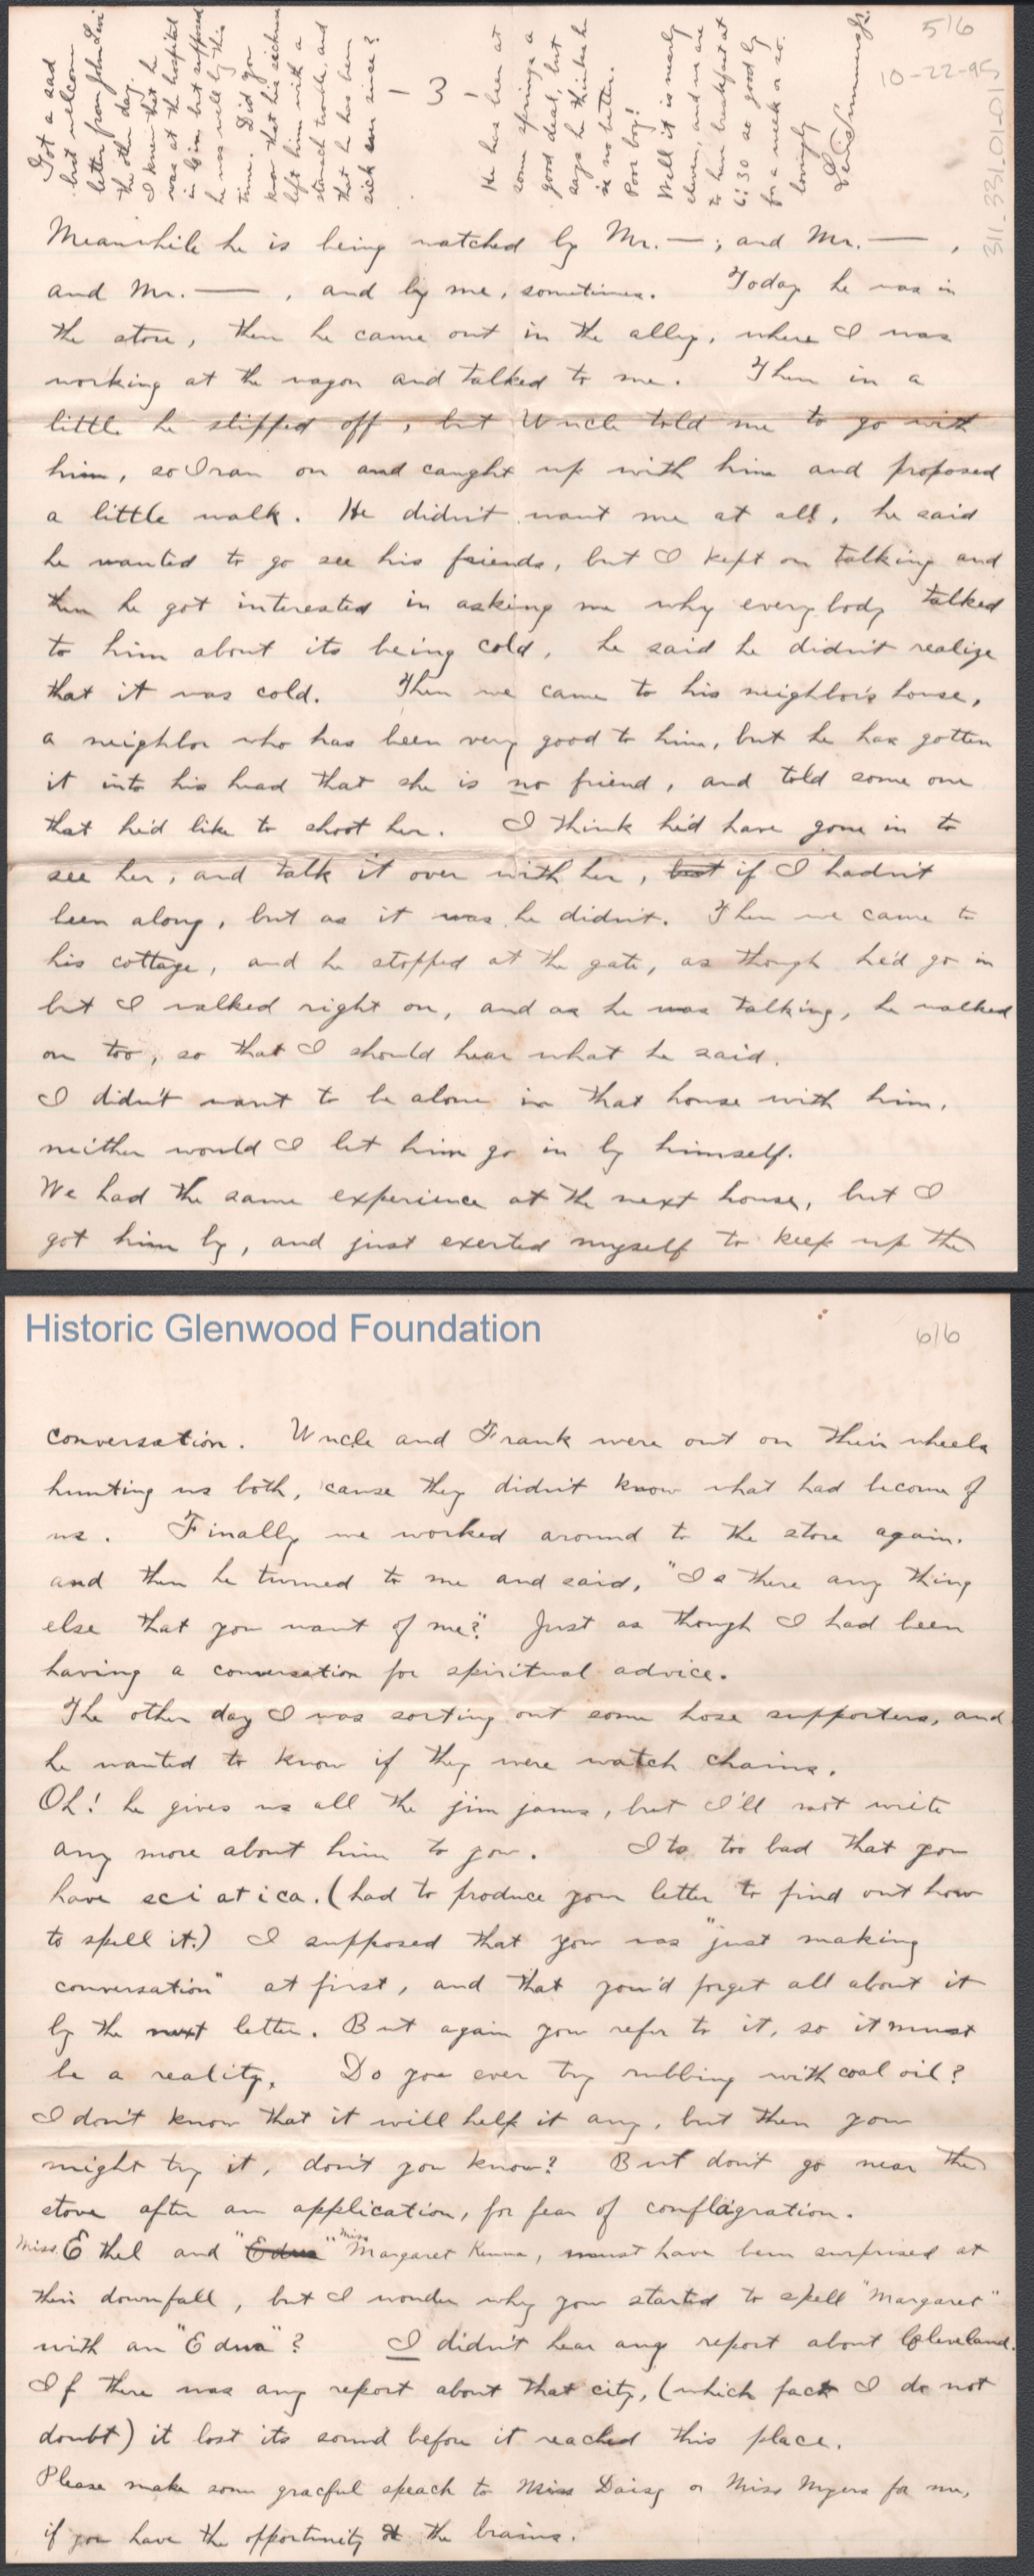 5/6
10-22-95
311.331.01-01
Got a sad
but welcome
letter from John Levi
the other day.
I knew that he
was at the hospital
in Cin. but supposed
he was well by this
time. Did you
know that his sickness
left him with a
stomach trouble, and
that he has been
sick ever since?
- 3 -
He has been at
some springs a
good deal, but
says he thinks he
is no better.
Poor boy!
Well it is nearly
eleven, and we are
to have breakfast at
6:30 so good by
for a week or so.
lovingly
Meanwhile he is being watched by Mr. — ; and Mr. — ,
and Mr. — , and by me, sometimes. Today he was in
the store, then he came out in the alley, where I was
working at the wagon and talked to me. Then in a
little he slipped off, but Uncle told me to go with
him, so I ran on and caught up with him and proposed
a little walk. He didn't want me at all, he said
he wanted to go see his friends, but I kept on talking and
then he got interested in asking me why everybody talked
to him about its being cold, he said he didn't realize
that it was cold. Then we came to his neighbor's house,
a neighbor who has been very good to him, but he has gotten
it into his head that she is no friend, and told some one
that he'd like to shoot her. I think he'd have gone in to
see her, and talk it over with her, but if I hadn't
been along, but as it was he didn't. Then we came to
his cottage, and he stopped at the gate, as though he'd go in
but I walked right on, and as he was talking, he walked
on too, so that I should hear what he said.
I didn't want to be alone in that house with him,
neither would I let him go in by himself.
We had the same experience at the next house, but I
got him by, and just exerted myself to keep up the
Historic Glenwood Foundation
6/6
conversation. Uncle and Frank were out on their wheels
hunting us both, 'cause they didn't know what had become of
us. Finally we worked around to the store again.
and then he turned to me and said, "Is there any thing
else that you want of me?" Just as though I had been
having a conversation for spiritual advice.
The other day I was sorting out some hose supporters, and
he wanted to know if they were watch chains.
Oh! he gives us all the jim jams, but I'll not write
any more about him to you. Its too bad that you
have sciatica. (had to produce your letter to find out how
to spell it.) I supposed that you was "just making
conversation" at first, and that you'd forget all about it
by the next letter. But again you refer to it, so it must
be a reality. Do you ever try rubbing with coal oil?
I don't know that it will help it any, but then you
might try it, don't you know? But don't go near the
stove after an application, for fear of conflagration.
Miss Ethel and "Edna" Miss Margaret must have been surprised at
their downfall, but I wonder why you started to spell "Margaret"
with an "Edna"? I didn't hear any report about Cleveland.
If there was any report about that city, (which fact I do not
doubt) it lost its sound before it reached this place.
Please make some gracful speach to Miss Daisy or Miss Myers for me,
if you have the opportunity & the brains.